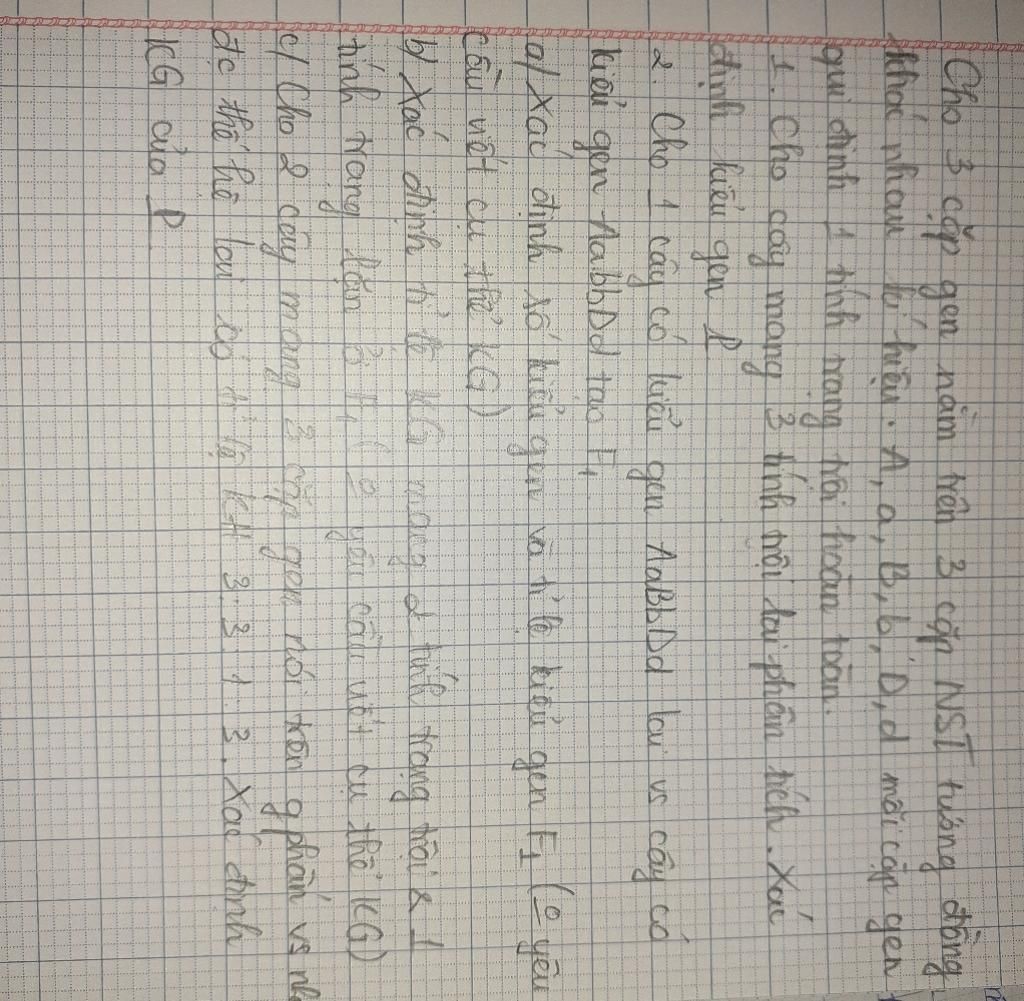 Cho 3 cặp gen nằm trên 3 cặp NST tương đồng
khác nhau kí hiệu. A, a, B, b, D, d mỗi cặp gen
qui định 1 tính trạng trội hoàn toàn.
1. Cho cây mang 3 tính trội lai phân tích. Xác
định kiểu gen P
2 Cho 1 cây có kiểu gen AaBbDd lai vs cây có
kiểu gen AabbDd tạo F1
a/ Xác định số kiểu gen và tỉ lệ kiểu gen F1 (o yêu
cầu viết cụ thể KG)
b/ Xác định tỉ lệ KG mang 2 tính trạng trội & 1
tính trạng lặn ở F1 (o yêu cầu viết cụ thể KG)
c/ Cho 2 cây mang 3 cặp gen nói trên gphấn vs nh
đc thế hệ lai có tỉ lệ KH 3:3:1:3. Xác định
KG của P